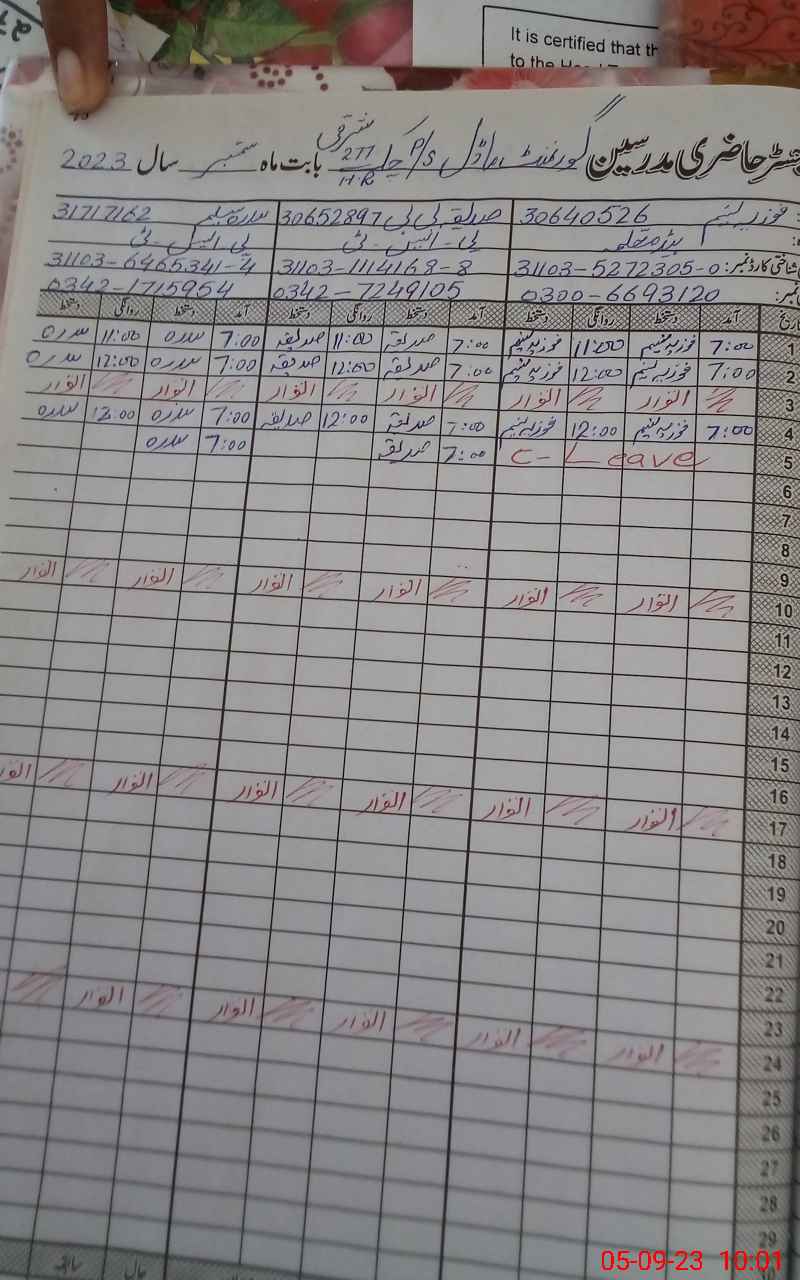 It is certified that th
to the Head T
رجسٹر حاضری مدرسین گورنمنٹ ماڈل P/S چک 277 H.R شرقی بابت ماہ ستمبر سال 2023
فوزیہ تسنیم 30640526 صدیقہ بی بی 30652897 سدرہ سلیم 31717162
ہیڈ معلمہ پی-ایس-ٹی پی-ایس-ٹی
شناختی کارڈ نمبر: 31103-5272305-0 31103-1114168-8 31103-6465341-4
نمبر: 0300-6693120 0342-7249105 0342-1715954
تاریخ آمد دستخط روانگی دستخط آمد دستخط روانگی دستخط آمد دستخط روانگی دستخط
1 7:00 فوزیہ تسنیم 11:00 فوزیہ تسنیم 7:00 صدیقہ 11:00 صدیقہ 7:00 سدرہ 11:00 سدرہ
2 7:00 فوزیہ تسنیم 12:00 فوزیہ تسنیم 7:00 صدیقہ 12:00 صدیقہ 7:00 سدرہ 12:00 سدرہ
3 اتوار اتوار اتوار اتوار اتوار اتوار
4 7:00 فوزیہ تسنیم 12:00 فوزیہ تسنیم 7:00 صدیقہ 12:00 صدیقہ 7:00 سدرہ 12:00 سدرہ
5 C-Leave 7:00 صدیقہ 7:00 سدرہ
6
7
8
9
10 اتوار اتوار اتوار اتوار اتوار اتوار
11
12
13
14
15
16
17 اتوار اتوار اتوار اتوار اتوار اتوار
18
19
20
21
22
23
24 اتوار اتوار اتوار اتوار اتوار
25
26
27
28
29
حال سابقہ
05-09-23 10:01